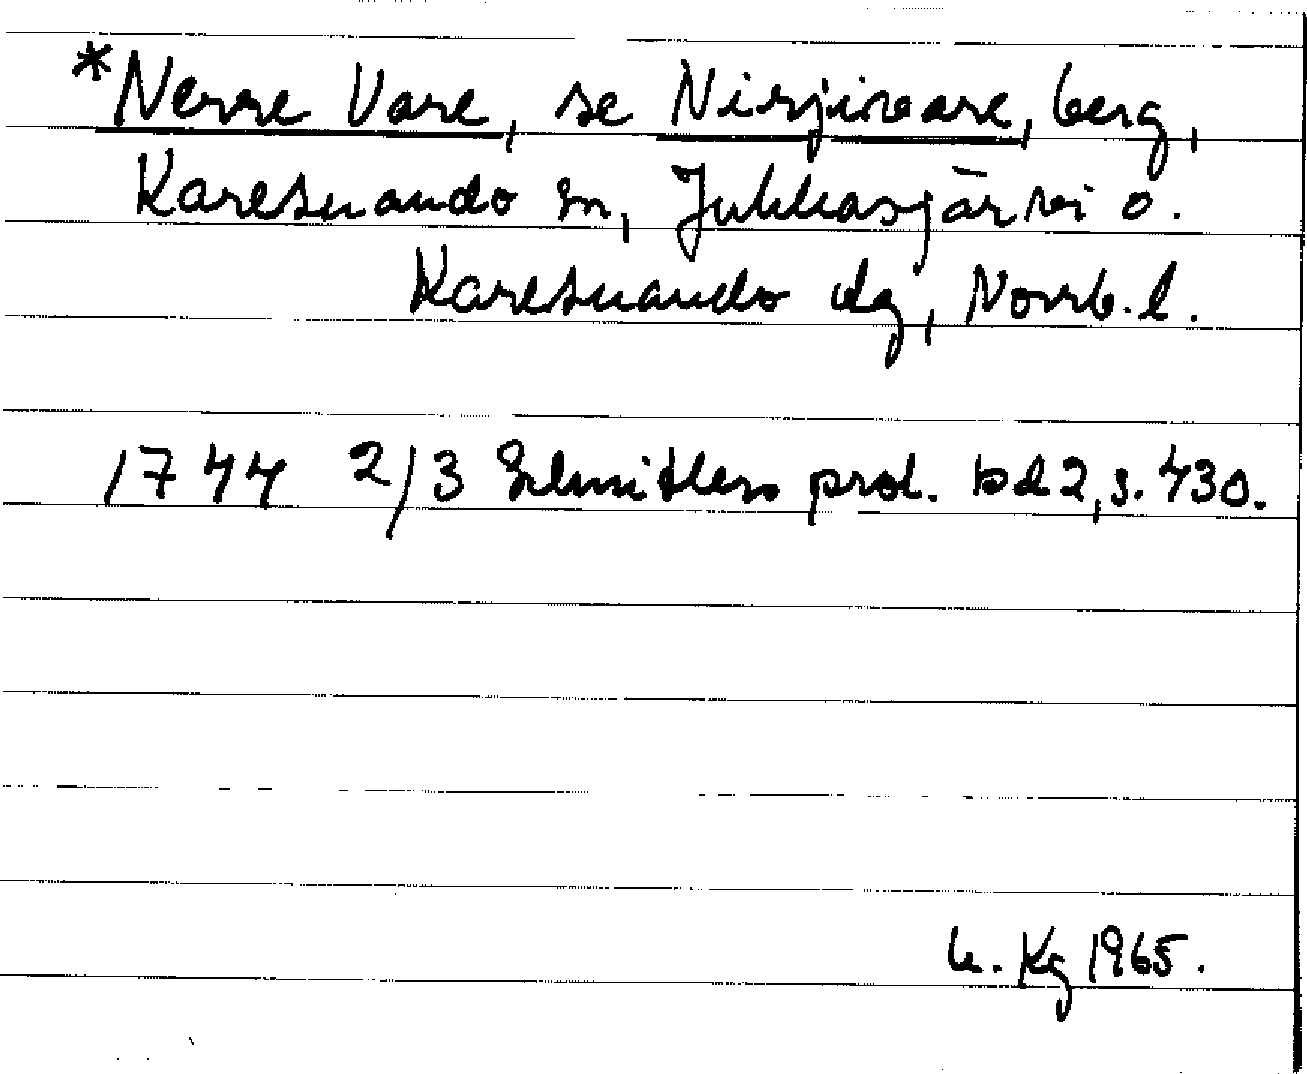 *Nerre Vare, se Nirjivare, berg,
Karesuando sn, Jukkasjärvi o.
Karesuando dg, Norrb. l.
1744 2/3 Schnitlers prot. bd 2, s. 430.
U. Kg 1965.